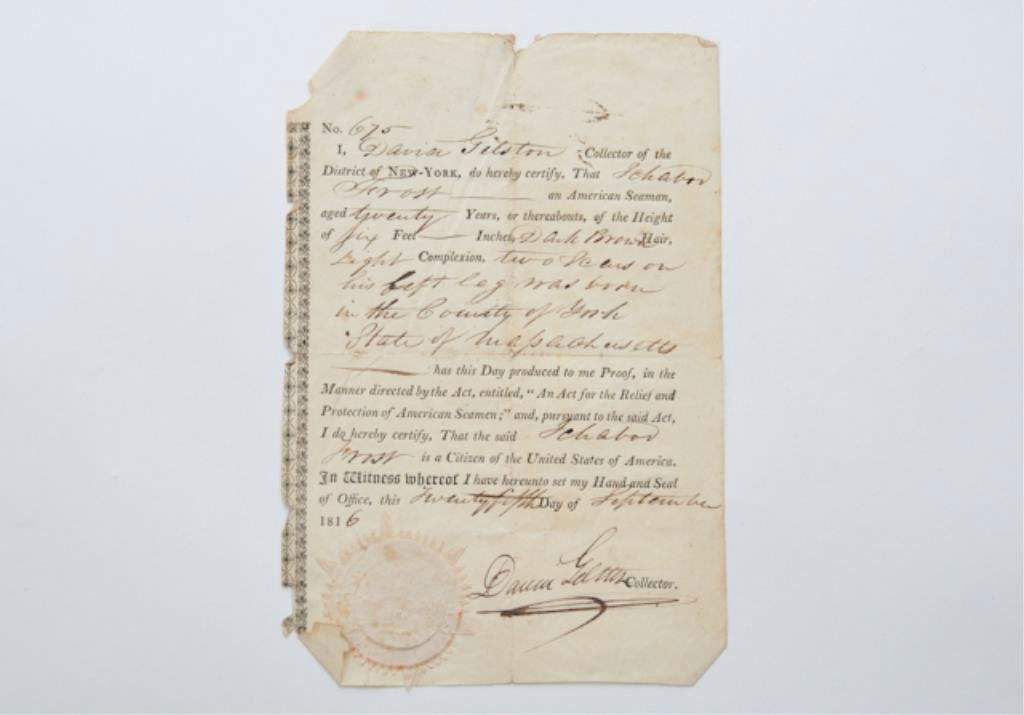 No. 675
I, David Gelston Collector of the
District of NEW-YORK, do hereby certify, That Ichabod
Frost an American Seaman,
aged twenty Years, or thereabouts, of the Height
of six Feet Inches, Dark Brown Hair,
Light Complexion, two Scars on
his left leg was born
in the County of York
State of Massachusetts
has this Day produced to me Proof, in the
Manner directed by the Act, entitled, "An Act for the Relief and
Protection of American Seamen;" and, pursuant to the said Act,
I do hereby certify, That the said Ichabod
Frost is a Citizen of the United States of America.
In Witness whereof I have hereunto set my Hand and Seal
of Office, this Twentyfifth Day of September
1816
David Gelston Collector.